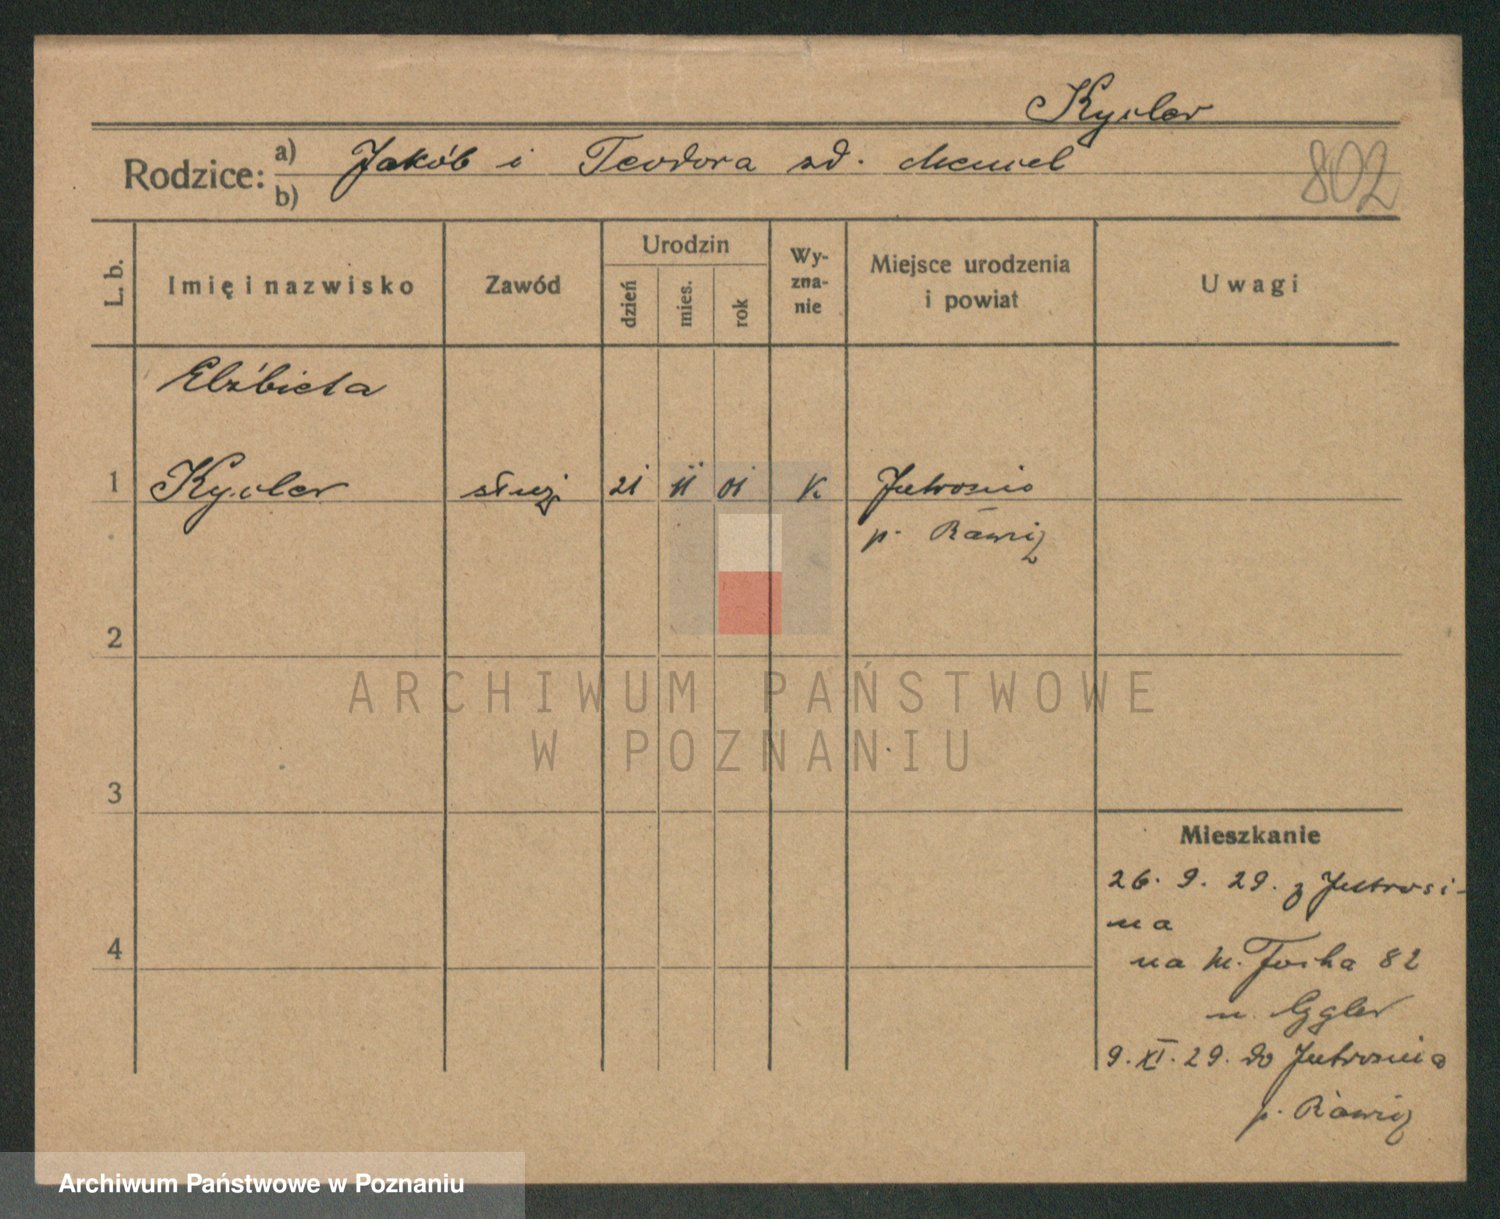 Kycler
Rodzice: a) Jakób i Teodora zd. Menzel
b)
802
L. b.
Imię i nazwisko
Zawód
Urodzin
dzień
mies.
rok
Wy-
zna-
nie
Miejsce urodzenia
i powiat
Uwagi
Elżbieta
1 Kycler służ. 21 11 01 K Jutrosin
p. Rawicz
2
3
4
Mieszkanie
26. 9. 29. z Jutrosi-
na
na M. Focha 82
u. Eggler
9. XI. 29. do Jutrosina
p. Rawicz
ARCHIWUM PAŃSTWOWE
W POZNANIU
Archiwum Państwowe w Poznaniu